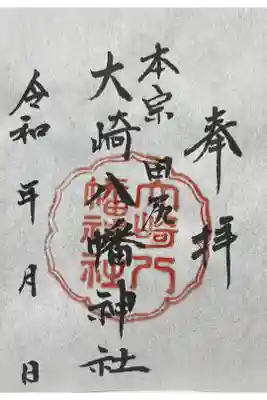 奉拝
本宗
田尻
大崎八幡神社
令和 年 月 日
大崎八幡神社